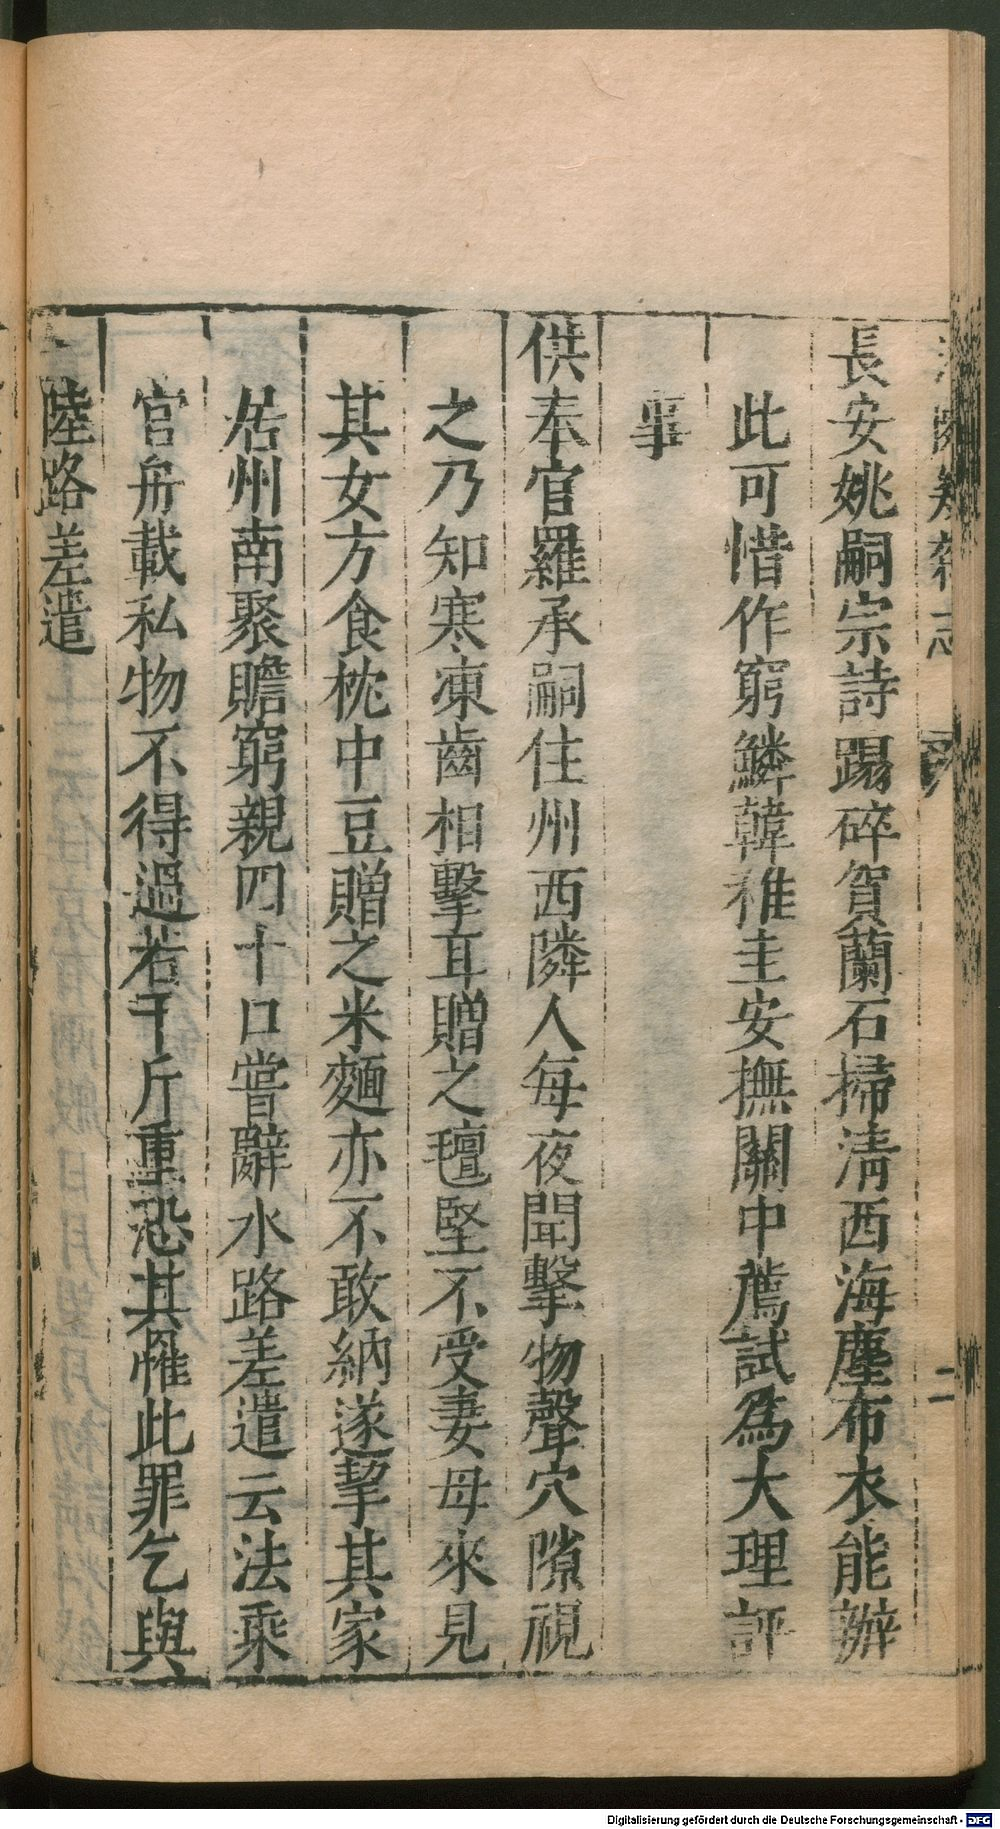 長安姚嗣宗詩踢碎賀蘭石掃清西海塵布衣能辦
此可惜作窮鱗韓稚圭安撫關中薦試爲大理評
事
供奉官羅承嗣住州西隣人每夜聞擊物聲穴隙視
之乃知寒凍齒相擊耳贈之氊堅不受妻母來見
其女方食枕中豆贈之米麵亦不敢納遂挈其家
居州南聚贍窮親四十口嘗辭水路差遣云法乘
官舟載私物不得過若干斤重恐其罹此罪乞與
陸路差遣
雜志
二
Digitalisierung gefördert durch die Deutsche Forschungsgemeinschaft - DFG